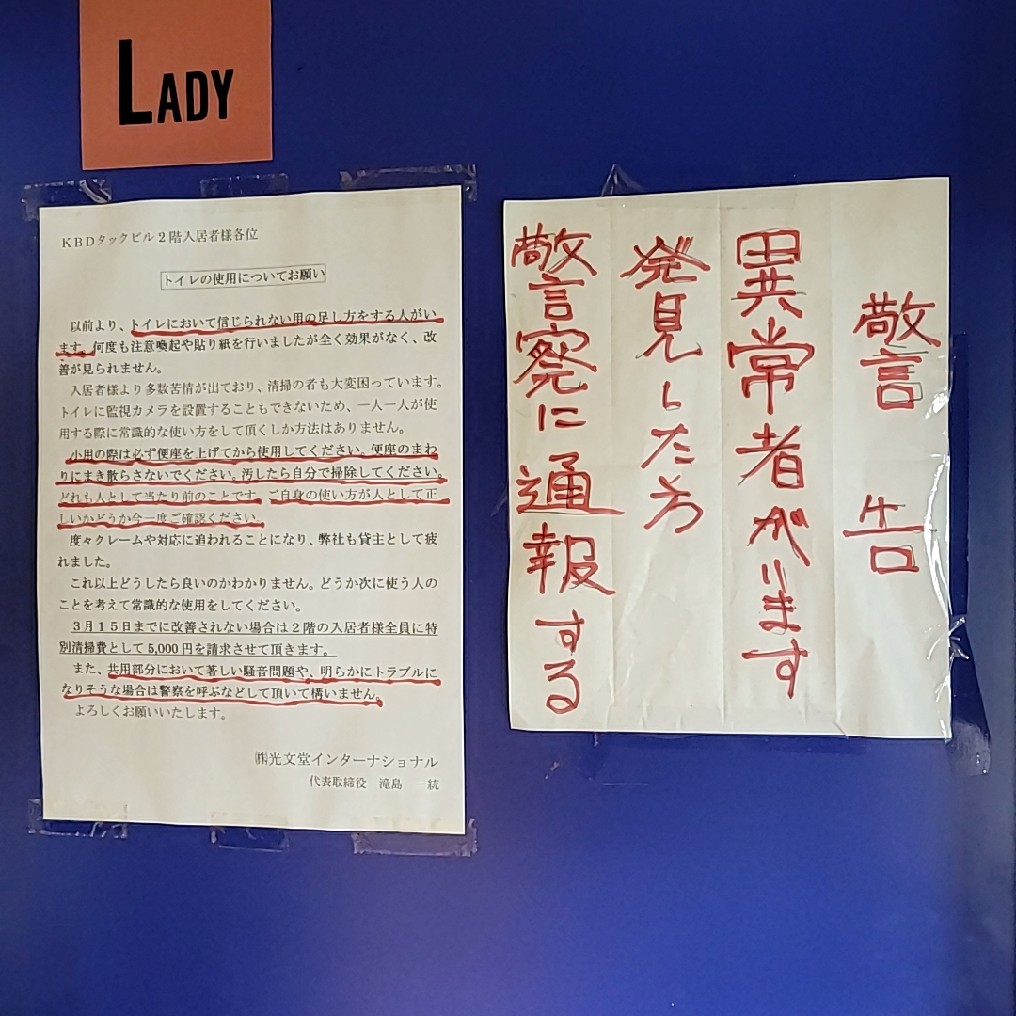 LADY
KBDタックビル2階入居者様各位
トイレの使用についてお願い
以前より、トイレにおいて信じられない用の足し方をする人がい
ます。何度も注意喚起や貼り紙を行いましたが全く効果がなく、改
善が見られません。
入居者様より多数苦情が出ており、清掃の者も大変困っています。
トイレに監視カメラを設置することもできないため、一人一人が使
用する際に常識的な使い方をして頂くしか方法はありません。
小用の際は必ず便座を上げてから使用してください。便座のまわ
りにまき散らさないでください。汚したら自分で掃除してください。
どれも人として当たり前のことです。ご自身の使い方が人として正
しいかどうか今一度ご確認ください。
度々クレームや対応に追われることになり、弊社も貸主として疲
れました。
これ以上どうしたら良いのかわかりません。どうか次に使う人の
ことを考えて常識的な使用をしてください。
3月15日までに改善されない場合は2階の入居者様全員に特
別清掃費として5,000円を請求させて頂きます。
また、共用部分において著しい騒音問題や、明らかにトラブルに
なりそうな場合は警察を呼ぶなどして頂いて構いません。
よろしくお願いいたします。
㈱光文堂インターナショナル
代表取締役 滝島
警告
異常者がいます
発見した方
警察に通報する